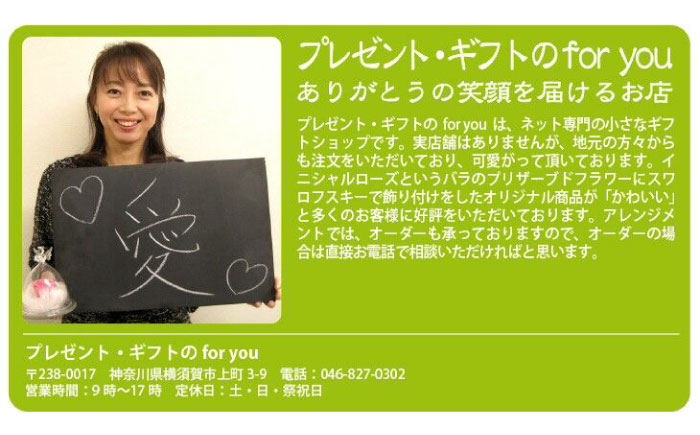 プレゼント・ギフトのfor you
ありがとうの笑顔を届けるお店
プレゼント・ギフトの for you は、ネット専門の小さなギフ
トショップです。実店舗はありませんが、地元の方々から
も注文をいただいており、可愛がって頂いております。イ
ニシャルローズというバラのプリザーブドフラワーにスワ
ロフスキーで飾り付けをしたオリジナル商品が「かわいい」
と多くのお客様に好評をいただいております。アレンジメ
ントでは、オーダーも承っておりますので、オーダーの場
合は直接お電話で相談いただければと思います。
愛
プレゼント・ギフトの for you
〒238-0017 神奈川県横須賀市上町 3-9 電話：046-827-0302
営業時間：9 時〜17 時 定休日：土・日・祭祝日